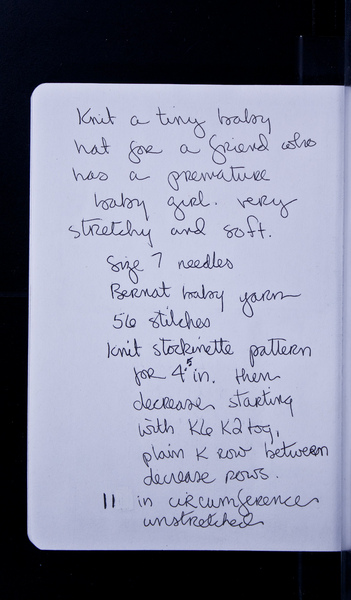 Knit a tiny baby
hat for a friend who
has a premature
baby girl. very
stretchy and soft.
Size 7 needles
Bernat baby yarn
56 stitches
Knit stockinette pattern
for 4.5 in. then
decrease starting
with K6 K2tog,
plain K row between
decrease rows.
11 in circumference
unstretched